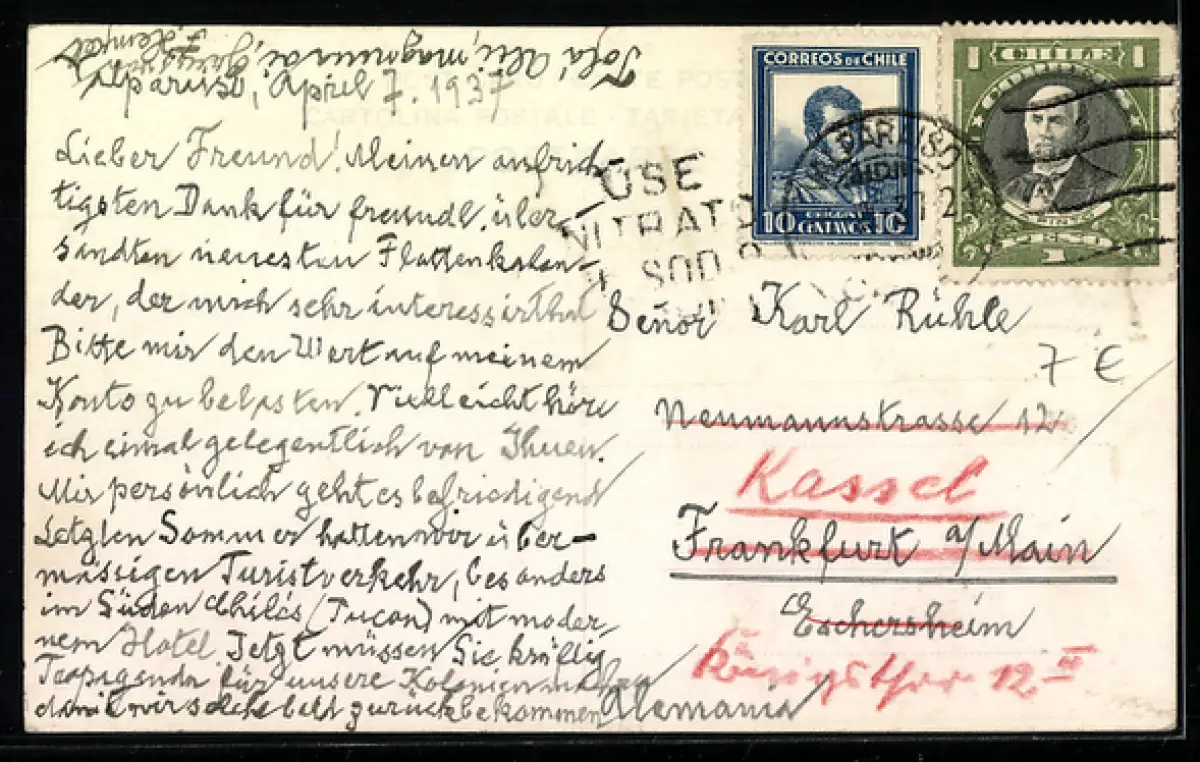 Valparaiso, April 7. 1937
Lieber Freund! Meinen aufrich-
tigsten Dank für freundl. über-
sandten neuesten Flottenkalen-
der, der mich sehr interessirt hat
Bitte mir den Wert auf meinem
Konto zu belasten. Vielleicht höre
ich einmal gelegentlich von Ihnen.
Mir persönlich geht es befriedigend
Letzten Sommer hatten wir über-
mässigen Turistverkehr, besonders
im Süden Chiles (Pucon) mit moder-
nem Hotel Jetzt müssen Sie kräftig
Propaganda für unsere Kolonien machen
damit wir solche bald zurückbekommen
CORREOS DE CHILE
10 CENTAVOS 10
1 CHILE 1
USE
NITRATO
SODA
Señor Karl Rühle
7 €
Neumannstrasse 12
Kassel
Frankfurt a/Main
Eschersheim
Königsthor 12 II
Alemania